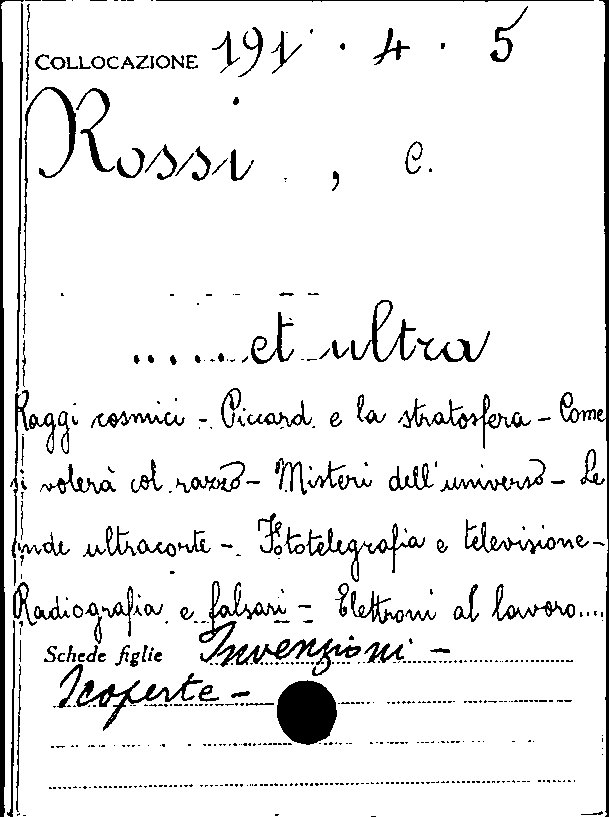 COLLOCAZIONE 191 · 4 · 5
Rossi , C.
..... et ultra
Raggi cosmici - Piccard e la stratosfera - Come
si volerà col razzo - Misteri dell'universo - Le
onde ultracorte - Fototelegrafia e televisione -
Radiografia e falsari - Elettroni al lavoro....
Schede figlie Invenzioni -
Scoperte -